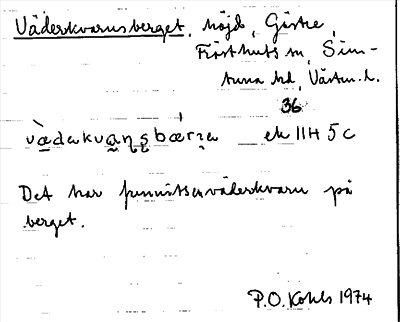 Väderkvarnsberget, höjd, Gästre,
Frösthults sn, Sim-
tuna hd, Västm. l.
36
vädakvaɳʂbærɜa ek 11H 5c
Det har funnits en väderkvarn på
berget.
P.O. Kohls 1974